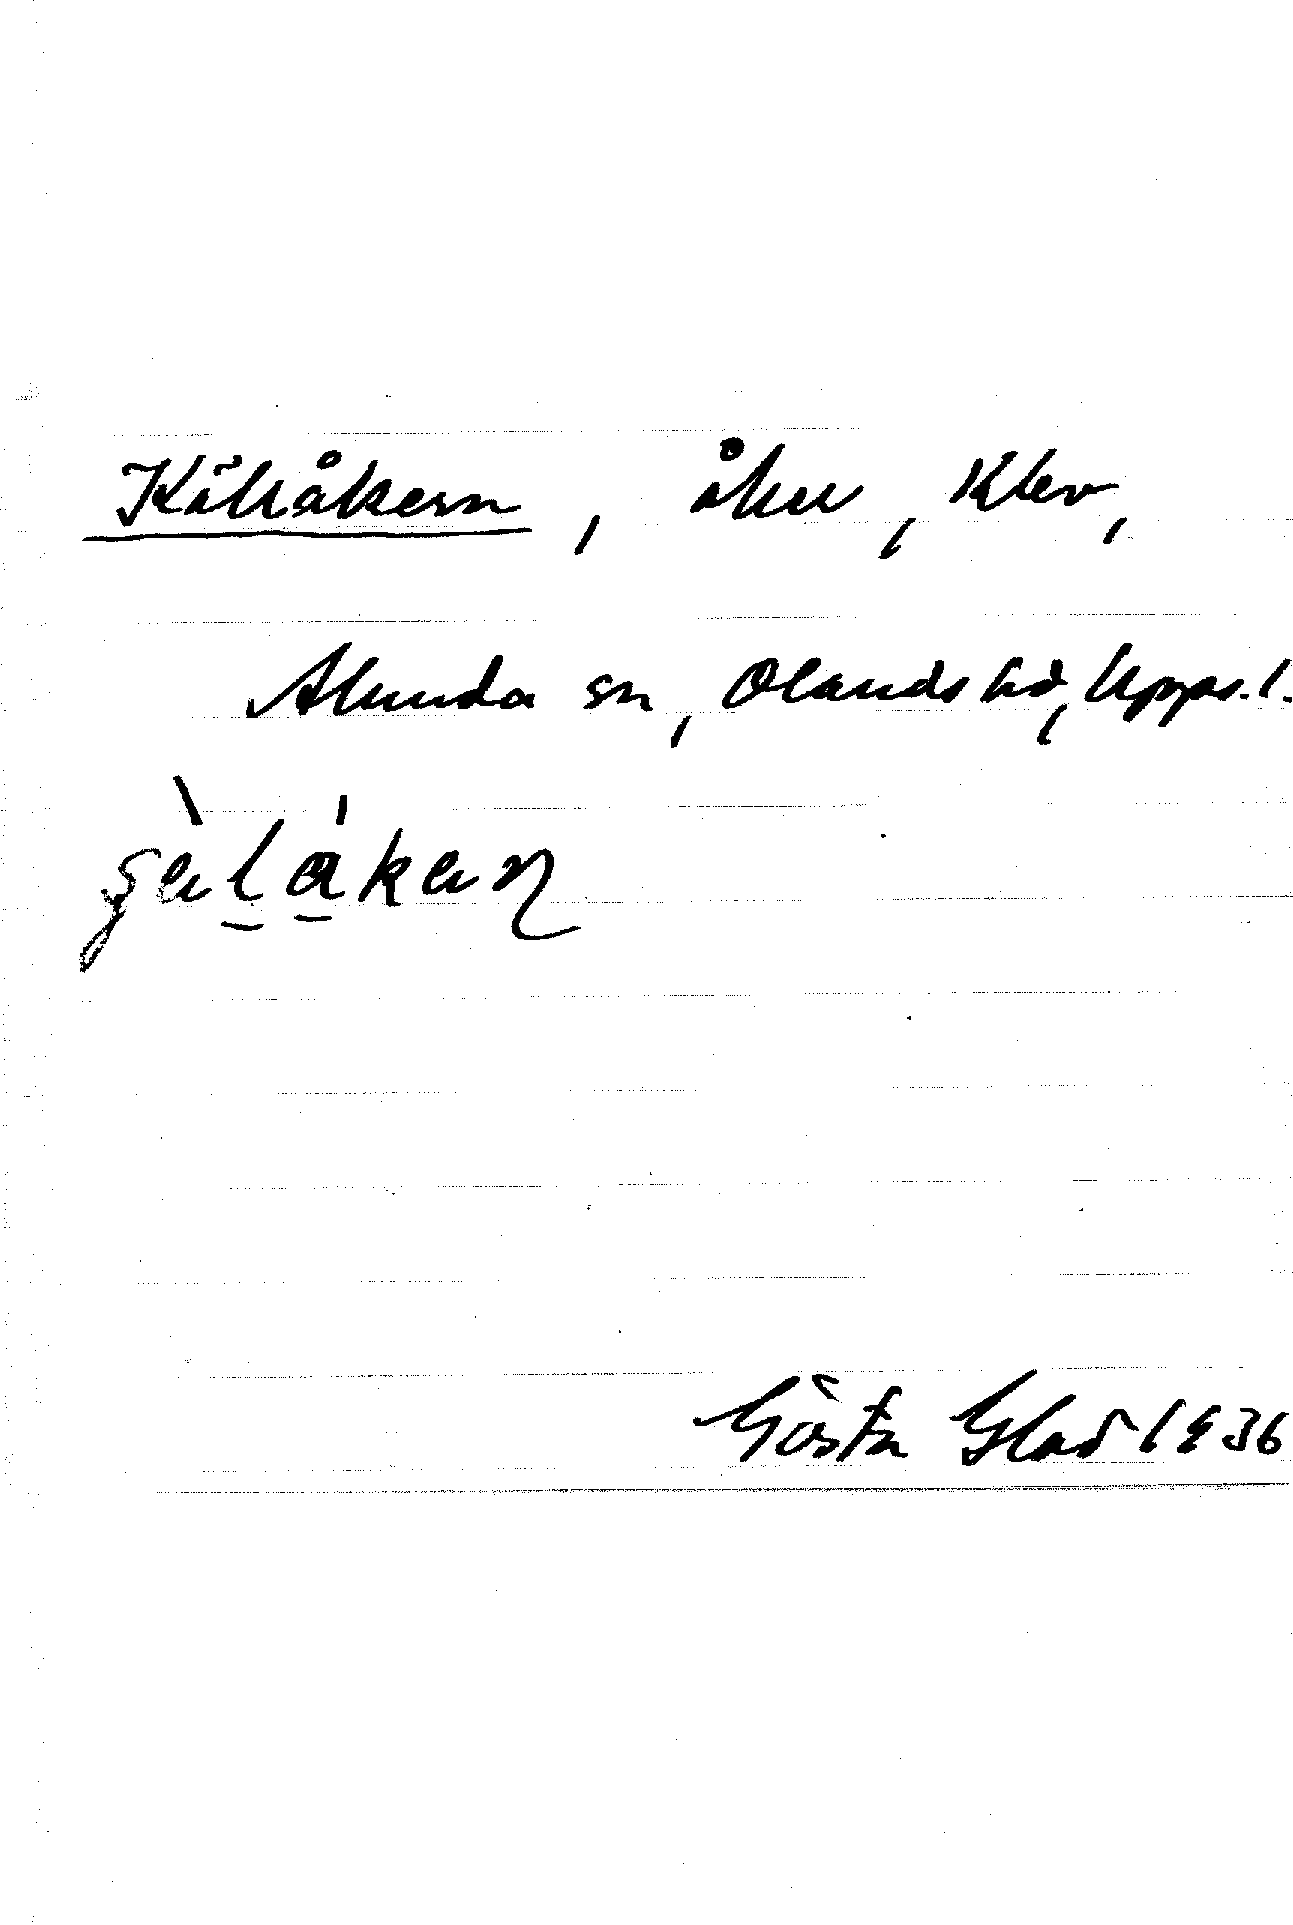 Kölråkern, åker, Klev,
Alunda sn, Olands hd, Upps. l.
Gösta Glad 1936